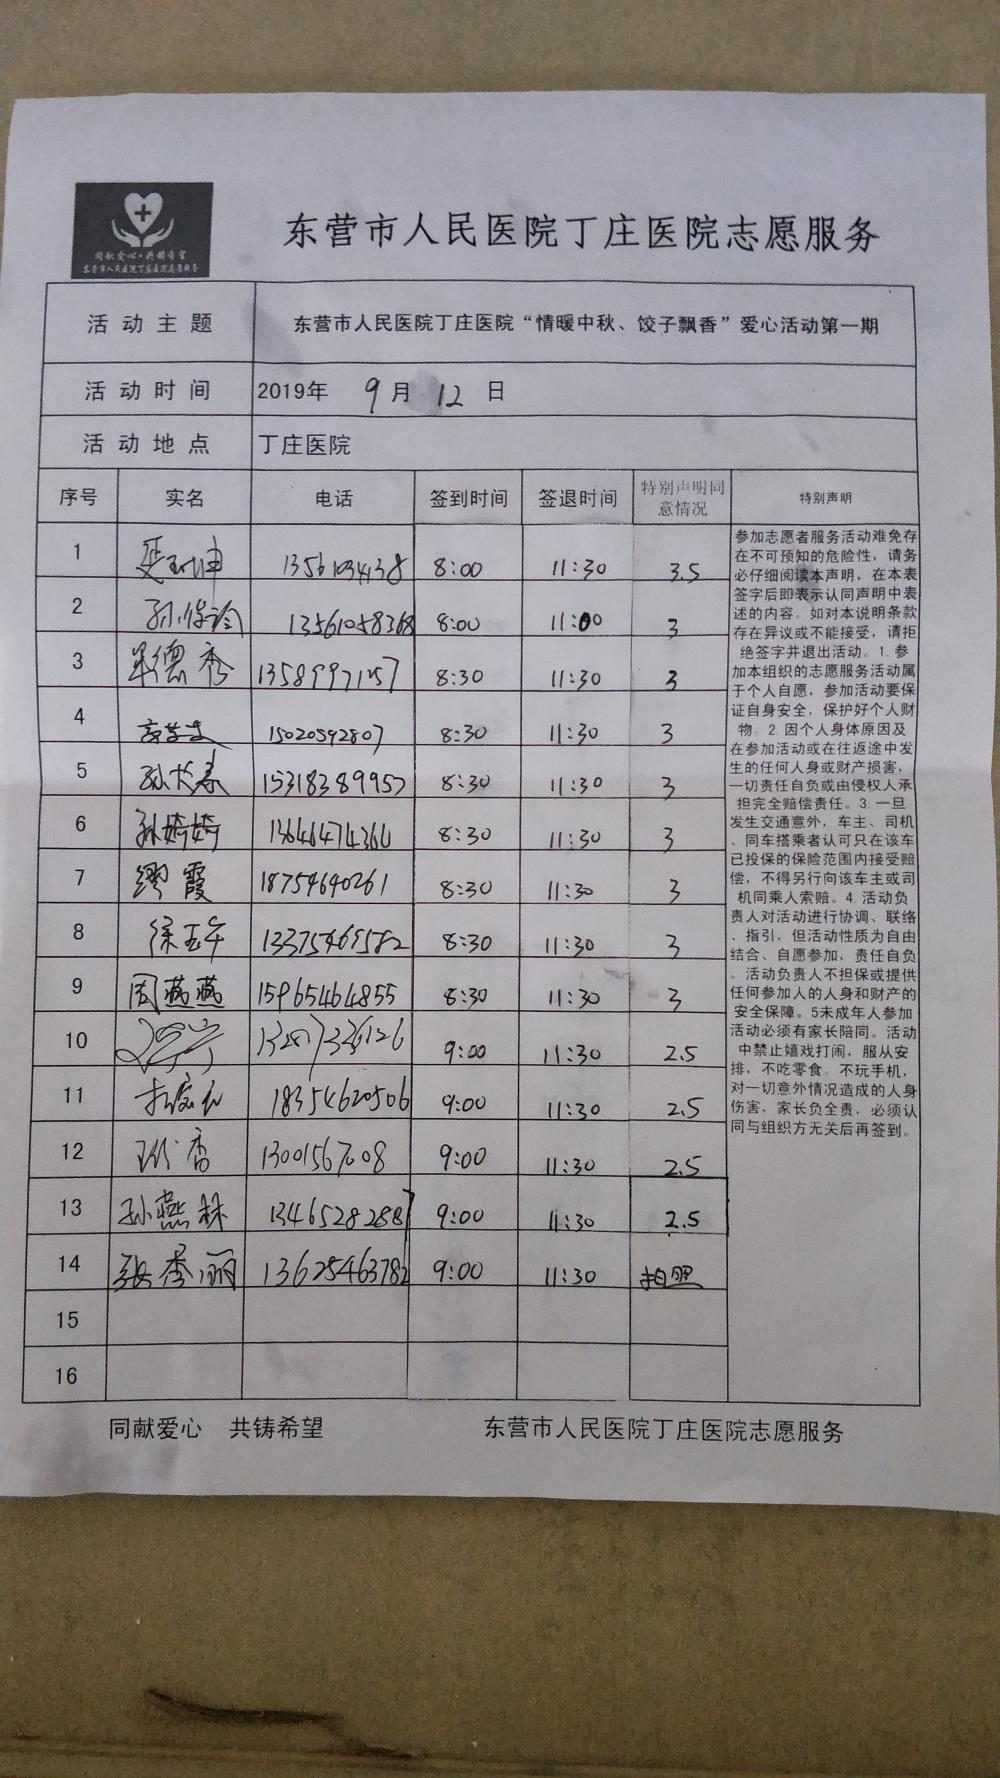 同献爱心·共铸希望
东营市人民医院丁庄医院志愿服务
东营市人民医院丁庄医院志愿服务
活动主题 东营市人民医院丁庄医院“情暖中秋、饺子飘香”爱心活动第一期
活动时间 2019年 9月 12日
活动地点 丁庄医院
序号 实名 电话 签到时间 签退时间 特别声明同意情况 特别声明
1 13561034138 8:00 11:30 3.5
2 13561058368 8:00 11:00 3
3 德秀 13589971257 8:30 11:30 3
4 15020592807 8:30 11:30 3
5 孙长春 15318389957 8:30 11:30 3
6 孙婷婷 13646474360 8:30 11:30 3
7 缪霞 18754640261 8:30 11:30 3
8 徐玉 13375469582 8:30 11:30 3
9 周燕燕 15965464855 8:30 11:30 3
10 9:00 11:30 2.5
11 18354620506 9:00 11:30 2.5
12 香 13001567008 9:00 11:30 2.5
13 孙燕林 13465282887 9:00 11:30 2.5
14 张秀丽 13625463782 9:00 11:30 拍照
15
16
参加志愿者服务活动难免存
在不可预知的危险性，请务
必仔细阅读本声明，在本表
签字后即表示认同声明中表
述的内容。如对本说明条款
存在异议或不能接受，请拒
绝签字并退出活动。1.参
加本组织的志愿服务活动属
于个人自愿，参加活动要保
证自身安全，保护好个人财
物。2.因个人身体原因及
在参加活动或在往返途中发
生的任何人身或财产损害，
一切责任自负或由侵权人承
担完全赔偿责任。3.一旦
发生交通意外，车主、司机
、同车搭乘者认可只在该车
已投保的保险范围内接受赔
偿，不得另行向该车主或司
机同乘人索赔。4.活动负
责人对活动进行协调、联络
、指引，但活动性质为自由
结合、自愿参加，责任自负
。活动负责人不担保或提供
任何参加人的人身和财产的
安全保障。5未成年人参加
活动必须有家长陪同。活动
中禁止嬉戏打闹，服从安
排，不吃零食，不玩手机，
对一切意外情况造成的人身
伤害，家长负全责，必须认
同与组织方无关后再签到。
同献爱心 共铸希望 东营市人民医院丁庄医院志愿服务